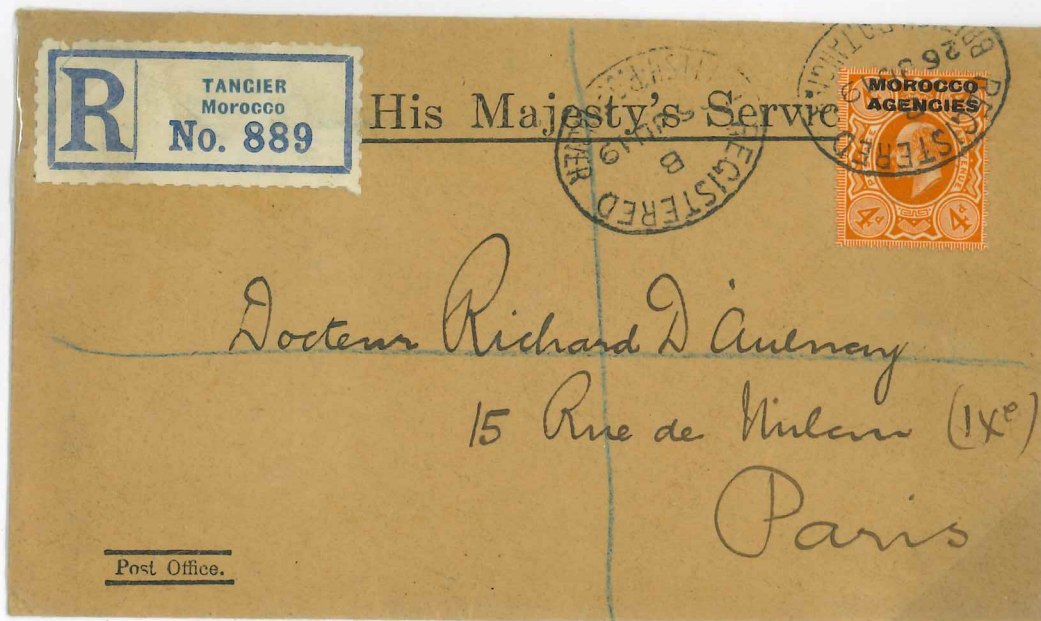 R
TANGIER
Morocco
No. 889
His Majesty's Servic
REGISTERED
B
REGISTERED
26
MOROCCO
AGENCIES
4d
4d
Docteur Richard D'Aulnay
15 Rue de Milan (IXe)
Paris
Post Office.